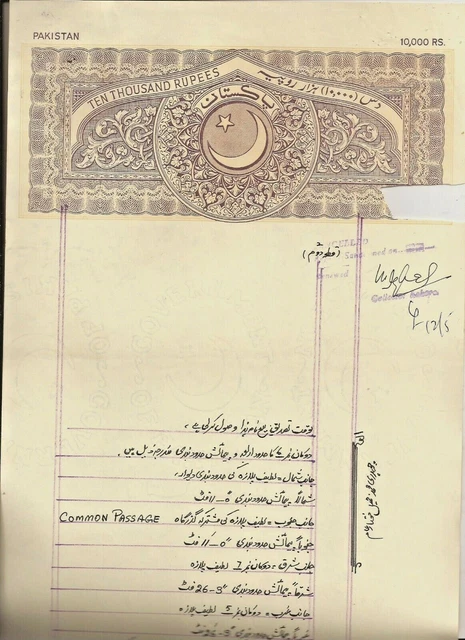 PAKISTAN 10,000 RS.
TEN THOUSAND RUPEES دس (۱۰،۰۰۰) ہزار روپیہ
پاکستان
بوقت تصدیق بیع نامہ ہذا وصول کرلی ہے ۔
دوکان نمبر 2 کا حدود اربعہ و پیمائش حدود بندی مندرجہ ذیل ہیں ۔
جانب شمال = لطیف پلازہ کی حدود بندی دیوار،
شمالاً پیمائش حدود بندی "0-'11 فٹ
جانب جنوب = لطیف پلازہ کی مشترکہ گزرگاہ COMMON PASSAGE
جنوباً پیمائش حدود بندی "0-'11 فٹ
جانب شرق = دوکان نمبر 1 لطیف پلازہ
شرقاً پیمائش حدود بندی "3-'26 فٹ
جانب غرب = دوکان نمبر لطیف پلازہ
12/5